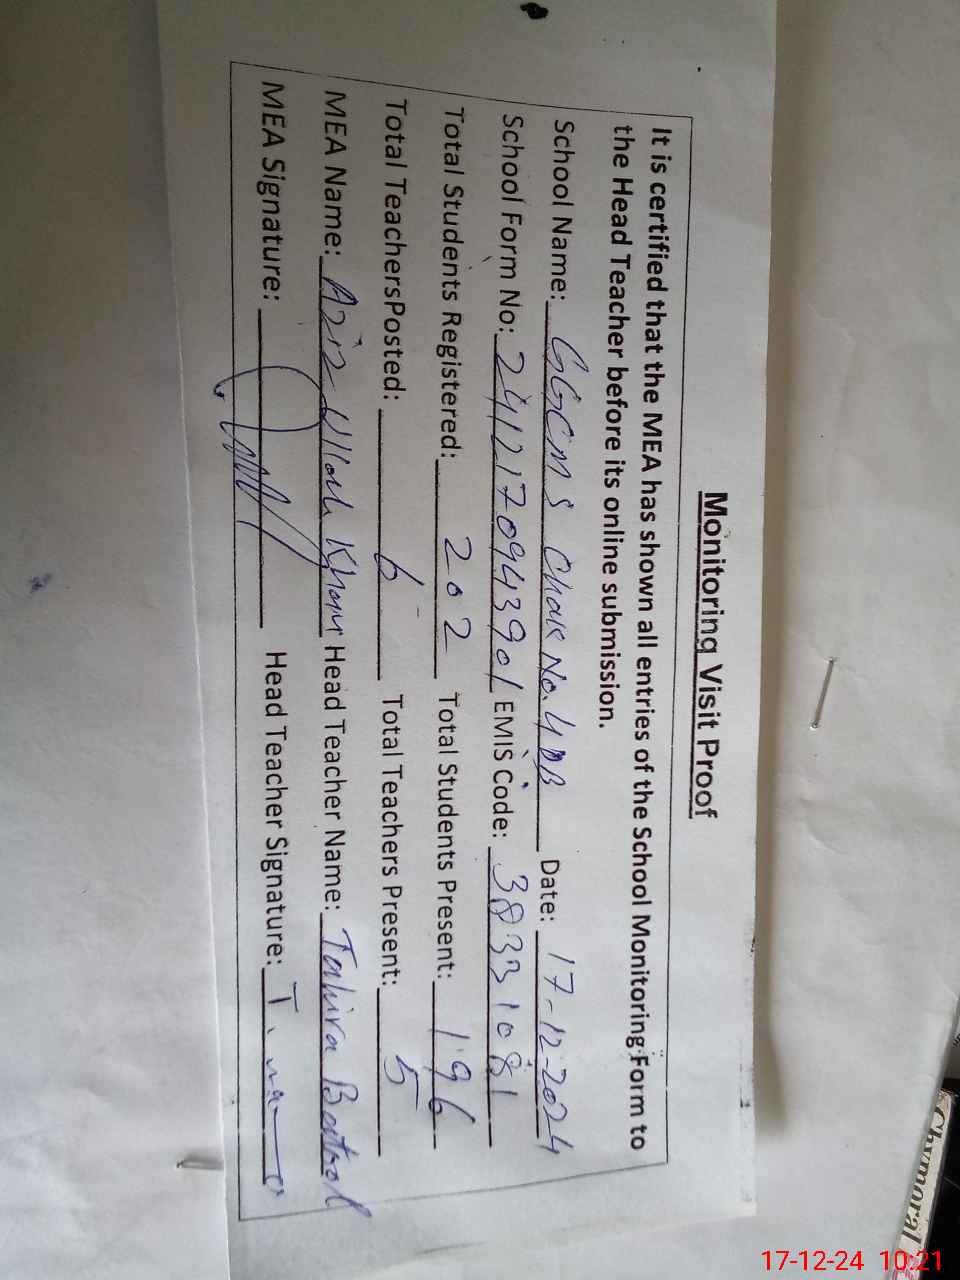 Monitoring Visit Proof
It is certified that the MEA has shown all entries of the School Monitoring Form to
the Head Teacher before its online submission.
School Name: GGCMS Chak No. 4 DB Date: 17-12-2024
School Form No: 2412170943901 EMIS Code: 38331081
Total Students Registered: 202 Total Students Present: 196
Total TeachersPosted: 6 Total Teachers Present: 5
MEA Name: Aziz Ullah Khan Head Teacher Name: Tahira Batool
MEA Signature: Head Teacher Signature: T.
Chymoral
17-12-24 10:21